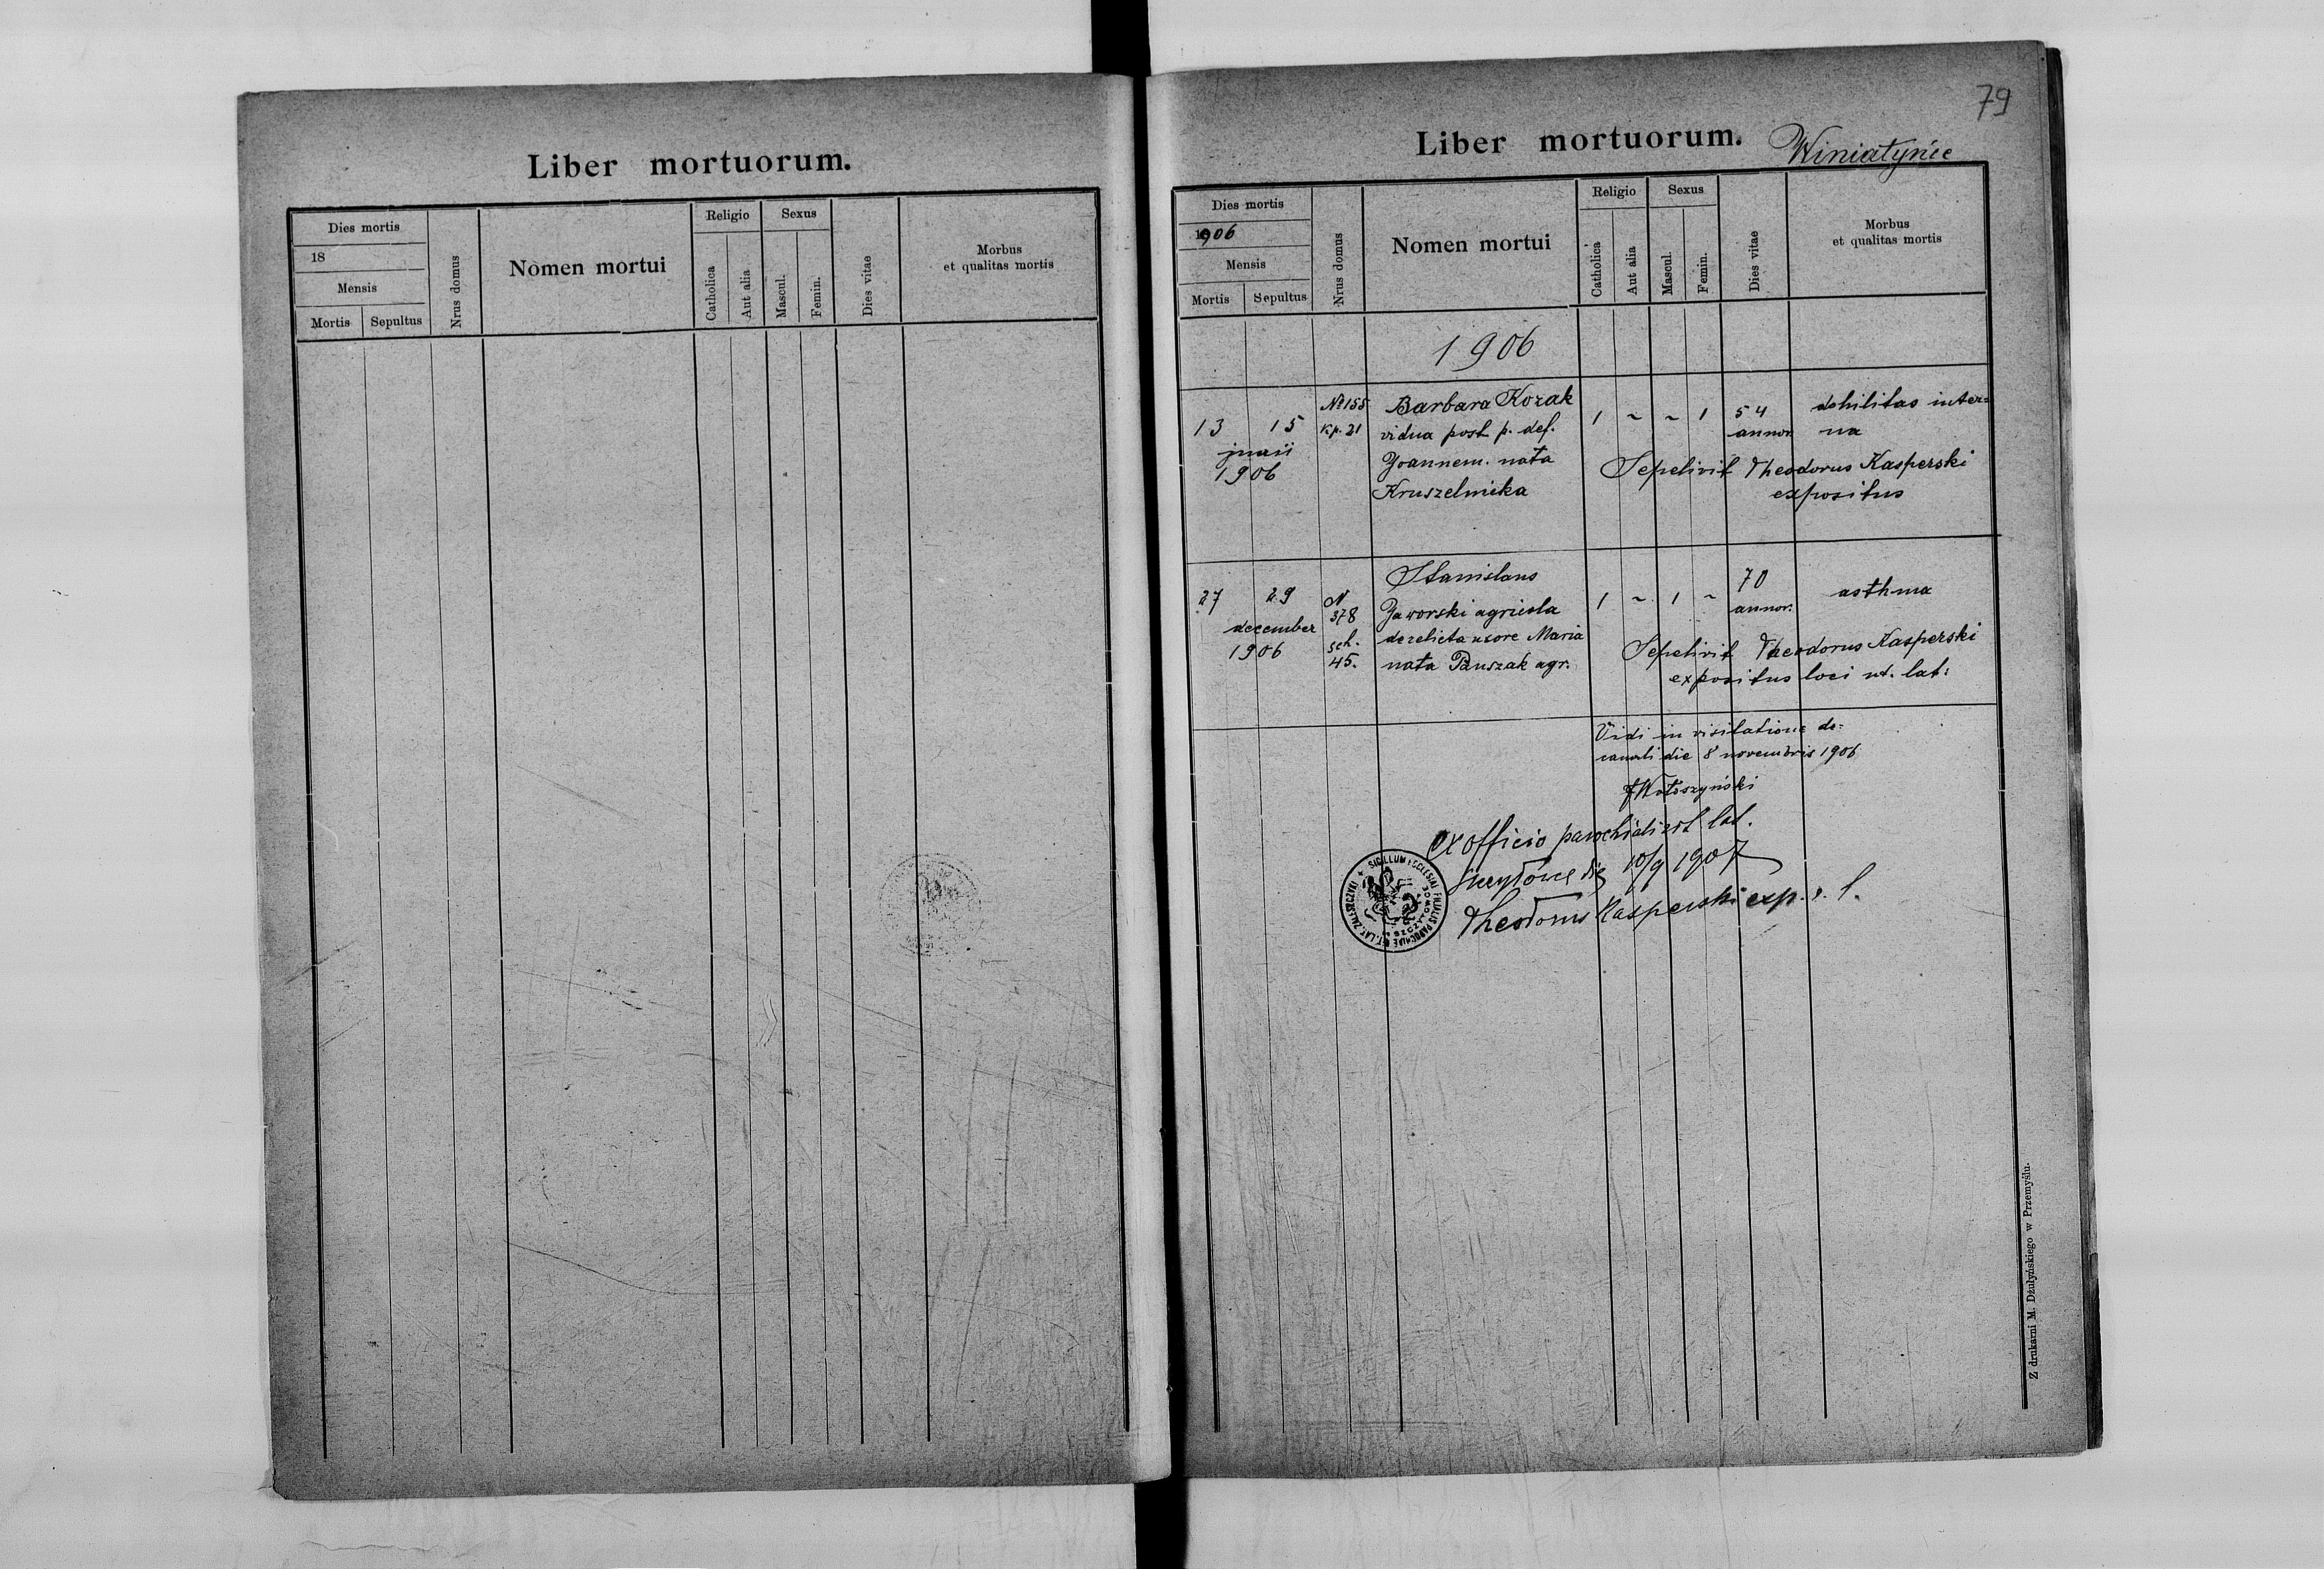 Liber mortuorum.
Dies mortis
18
Mensis
Mortis Sepultus
Nrus domus
Nomen mortui
Religio
Catholica
Aut alia
Sexus
Mascul.
Femin.
Dies vitae
Morbus
et qualitas mortis
79
Liber mortuorum. Winiatyńce
Dies mortis
1906
Mensis
Mortis Sepultus
Nrus domus
Nomen mortui
Religio
Catholica
Aut alia
Sexus
Mascul.
Femin.
Dies vitae
Morbus
et qualitas mortis
1906
13 15
1906
№ 155
Kp. 21
Barbara Kozak
vidua post p. def.
Joannem. nata
Kruszelnicka
1 ~ ~ 1
54
annor.
debilitas inter=
na
Sepelivit Theodorus Kasperski
expositus
27 29
december
1906
N
378
sch.
45.
Stanislaus
Jaworski agricola
derelicta uxore Maria
nata Pauszak agr.
1 ~ 1 ~
70
annor.
asthma
Sepelivit Theodorus Kasperski
expositus loci rt. lat:
Vidi in visitatione de=
canali die 8 novembris 1906
ex officio parochiali rit lat.
die 10/9 1907
Theodorus Kasperski exp. r. l.
SIGILLUM ECCLESIAE FILIALIS PAROCHIAE RT. LAT. ZALESZCZYKI
Z drukarni M. Dżułyńskiego w Przemyślu.